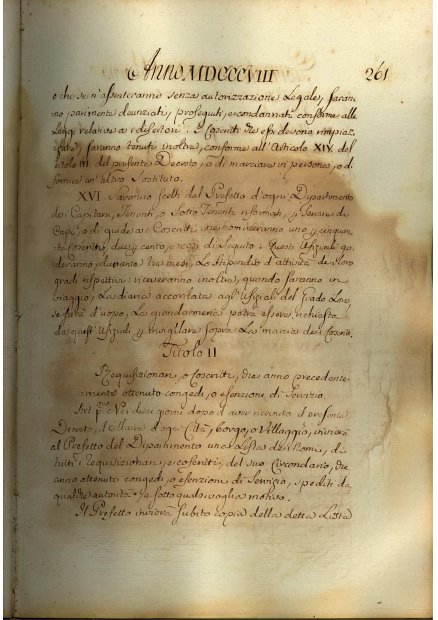 Anno MDCCCVIII 261
o che se n'assenteranno senza autorizzazione Legale, saran-
no parimente denunziati, proseguiti, e condannati conforme alle
Leggi relative ai desertori. I Coscritti che essi devono rimpiaz-
zare, saranno tenuti inoltre, conforme all'Articolo XIV. del
titolo III del presente Decreto, o di marciare in persona, o di
fornire un' altro sostituto.
XVI Saranno scelti dal Prefetto d'ogni Dipartimento
dei Capitani, Tenenti, o Sotto Tenenti riformati, p
di guida ai Coscritti, ne nomineranno uno p cinquan-
ta Coscritti, due p cento, e così di seguito. Questi Ufiziali go-
deranno, durante tre mesi, Lo stipendio d'attività de' loro
gradi rispettivi: riceveranno inoltre, quando saranno in
viaggio, La diaria accordata agl' Ufiziali del grado Loro
se farà d'uopo, La giandarmeria potrà essere richiesta
da questi Ufiziali p invigilare sopra La marcia dei Coscritti.
Titolo II
Requisizionari, o Coscritti, che anno precedente-
mente ottenuto congedi, o esenzioni di Servizio.
Art. P.° Nei dieci giorni dopo d'aver ricevuto il presente
Decreto, il Maire d'ogni Città, Borgo, o Villaggio, invierà
al Prefetto del Dipartimento una Lista dei Nomi, di
tutti i Requisizionari, e coscritti, del suo Circondario, che
anno ottenuto congedi, o esenzione di Servizio, spediti da
qualche autorità, e sotto qualsivoglia motivo.
Il Prefetto invierà subito copia della detta Lista